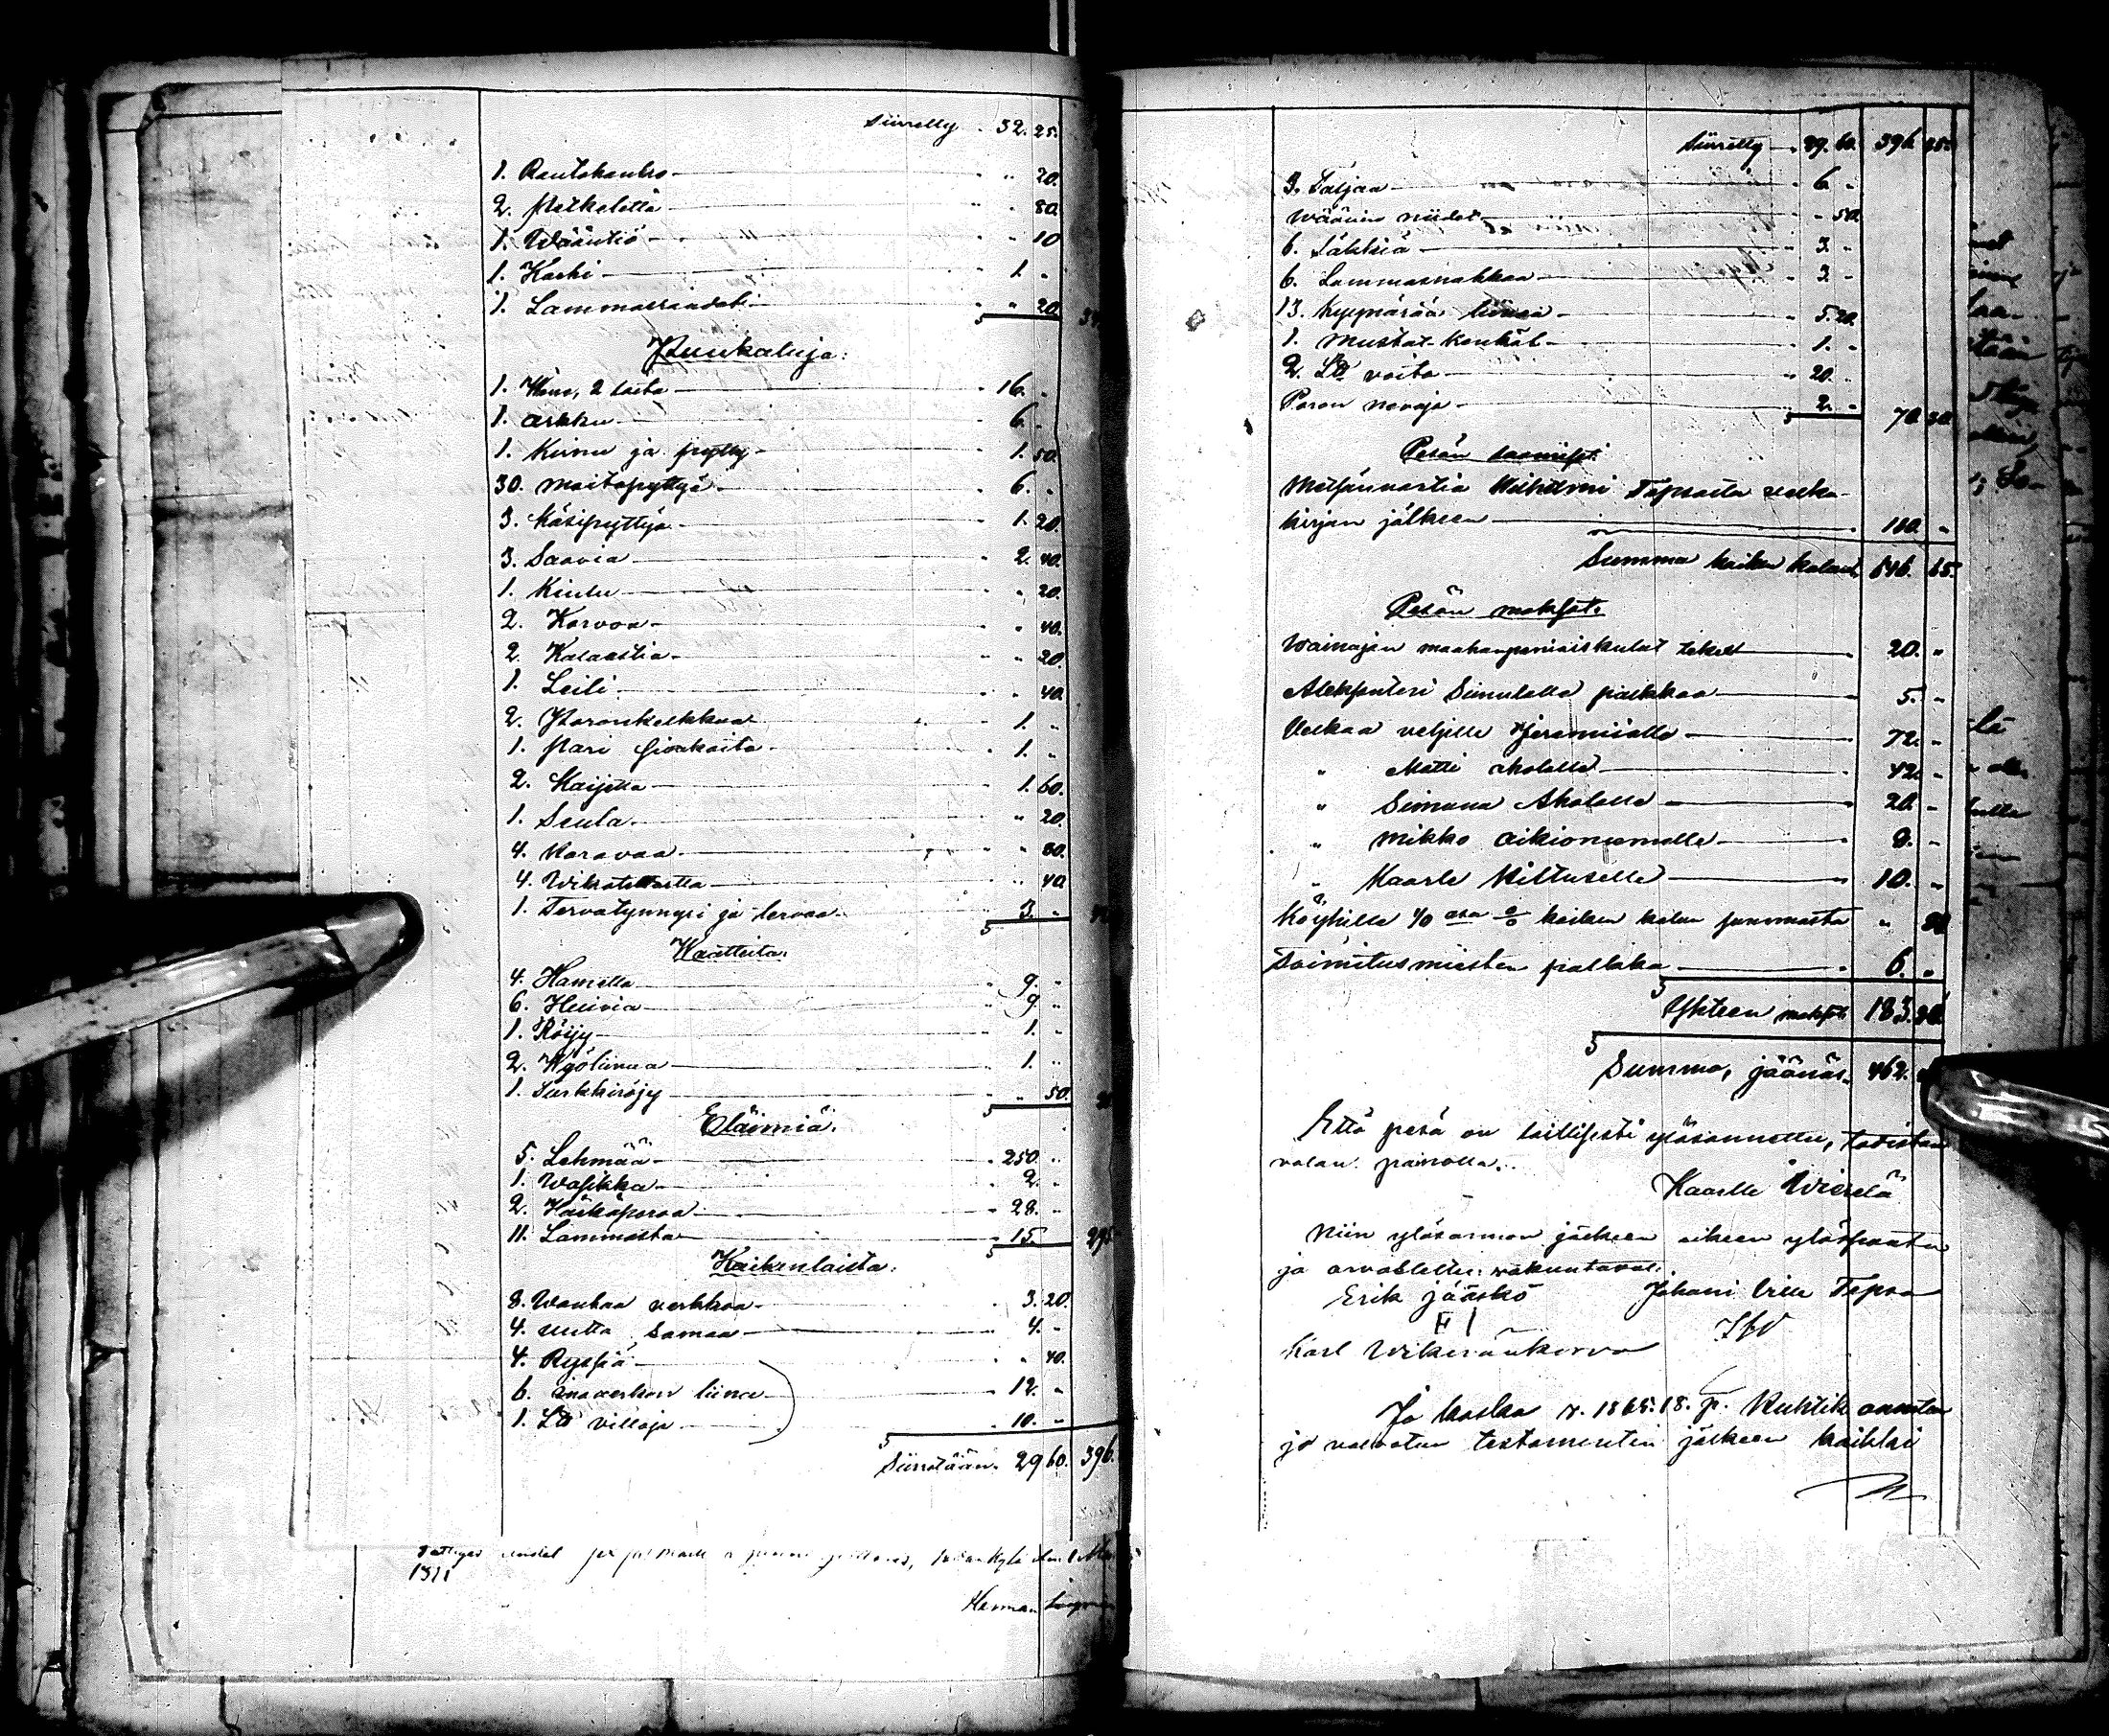 Siirretty 32. 25.
1. Rautakanki " 20.
2. petkeltä " 80.
1. Wääntiö " 10
1. Karhi 1. "
1. Lammasraudat " 20
Puukaluja:
1. 2 16. "
1. arkku 6. "
1. Kirnu ja pytty 1. 50.
30. maitopyttyä 6. "
3. Käsipyttyä 1. 20.
3. Saavia 2. 40.
1. Kiulu " 20.
2. Korvoa " 40.
2. Kalaastia " 20.
1. Leili " 40.
2. Poronkelkkaa 1. "
1. pari 1. "
2. 1. 60.
1. Seula " 20.
4. Karavaa " 80.
4. " 40.
1. Tervatynnyri ja tervaa 3. "
Waatteita:
4. Hametta 9. "
6. Huivia 9. "
1. Röijy 1. "
2. Wyöliinaa 1. "
1. Turkkiröijy " 50.
Eläimiä:
5. Lehmää 250. "
1. Wasikka 2. "
2. Härkäporoa 28. "
11. Lammasta 15. " 295
Kaikenlaista:
8. Wanhaa verkkoa 3. 20.
4. uutta samaa 4. "
4. Ryssiä " 40.
6. liina 12. "
1. LU villoja 10. "
Siirretään 29 60. 396.
1871
Herman
Siirretty 29. 60. 396 25.
3. Taljaa 6. "
" 50.
6. Säkkiä 3. "
6. Lammasnahkaa 3. "
13. Kyynärää liinaa 5. 20.
1. Mustat 1. "
2. LU voita 20. "
Poron 2. " 70. 30.
Pesän saamiset
Wilhelmi Tapsalta velka-
kirjan jälkeen 180. "
Summa kaiken kalun 646. 65.
Pesän maksot:
Wainajan maahanpaniaiskulut tekee 20. "
Aleksanteri Simulalle palkkaa 5. "
Velkaa veljille Jeremiialle 72. "
" Matti Aholalle 42. "
" Simuna Aholalle 20. "
" Mikko Aikioniemelle 8. "
" Kaarle Kiltuselle 10. "
Köyhille osa kaiken kalun summasta " 80
Toimitusmiesten palkka 6. "
Yhteen maksot 183. 80.
Summa, jäänös 462.
Että pesä on täillisesti ylösannettu, todistan
valan painolla.
Kaarlle Wierelä
Niin ylösannon jälkeen oikeen ylöspantu
ja arvoteltu; wakuutavat:
Erik Jääskö Johani Wille Tapsa
Karl Wikeränkorva
Jo koska v. 1865. 18. p. Huhtik. annetun
ja valvotun testamentin jälkeen kaikki